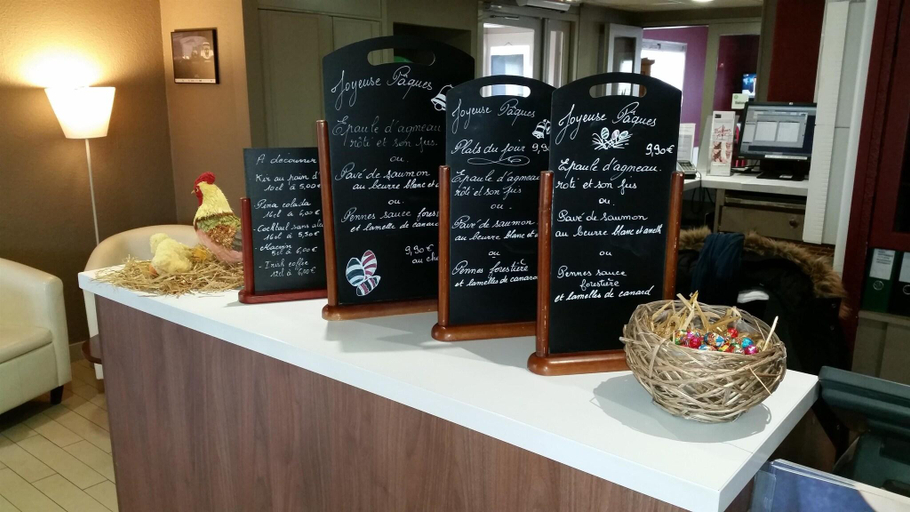 A découvrir
10cl à 5,00€
Pina colada
16cl à 6,00€
Cocktail sans
16cl à 5,50€
6,00€
Irish coffee
Joyeuse Pâques
Epaule d'agneau
rôti et son jus.
ou.
Pavé de saumon
au beurre blanc et
ou
Pennes sauce
et lamelle de canard
9,90€
au
Joyeuse Pâques
Plats du jour 9,9
Epaule d'agneau
rôti et son jus
ou.
Pavé de saumon
au beurre blanc et
ou
Pennes forestière
et lamelles de canard
Joyeuse Pâques
9,90€
Epaule d'agneau.
rôti et son jus
ou.
Pavé de saumon
au beurre blanc et aneth
ou
Pennes sauce
forestière
et lamelles de canard